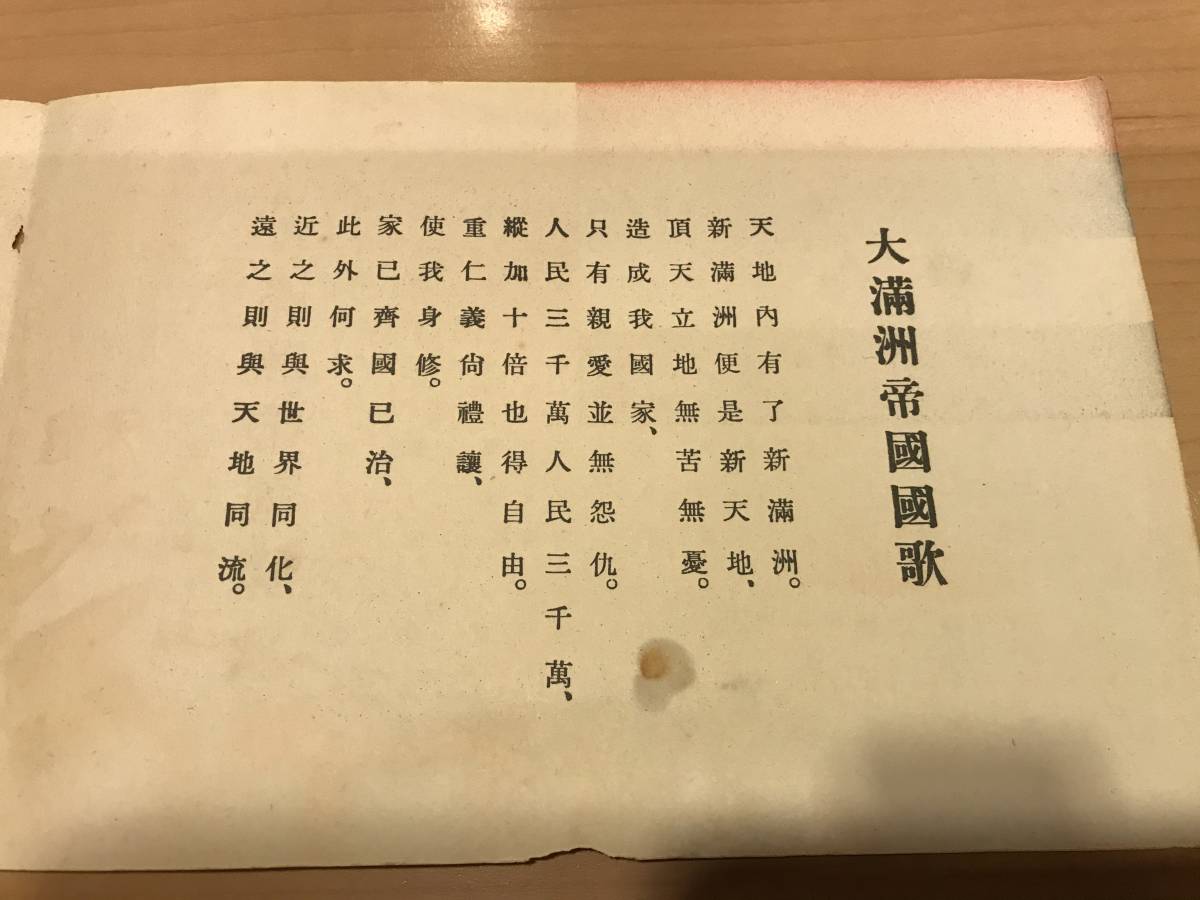 大滿洲帝國國歌
天地內有了新滿洲。
新滿洲便是新天地、
頂天立地無苦無憂。
造成我國家、
只有親愛並無怨仇。
人民三千萬人民三千萬、
縱加十倍也得自由。
重仁義尙禮讓、
使我身修。
家已齊國已治、
此外何求。
近之則與世界同化、
遠之則與天地同流。